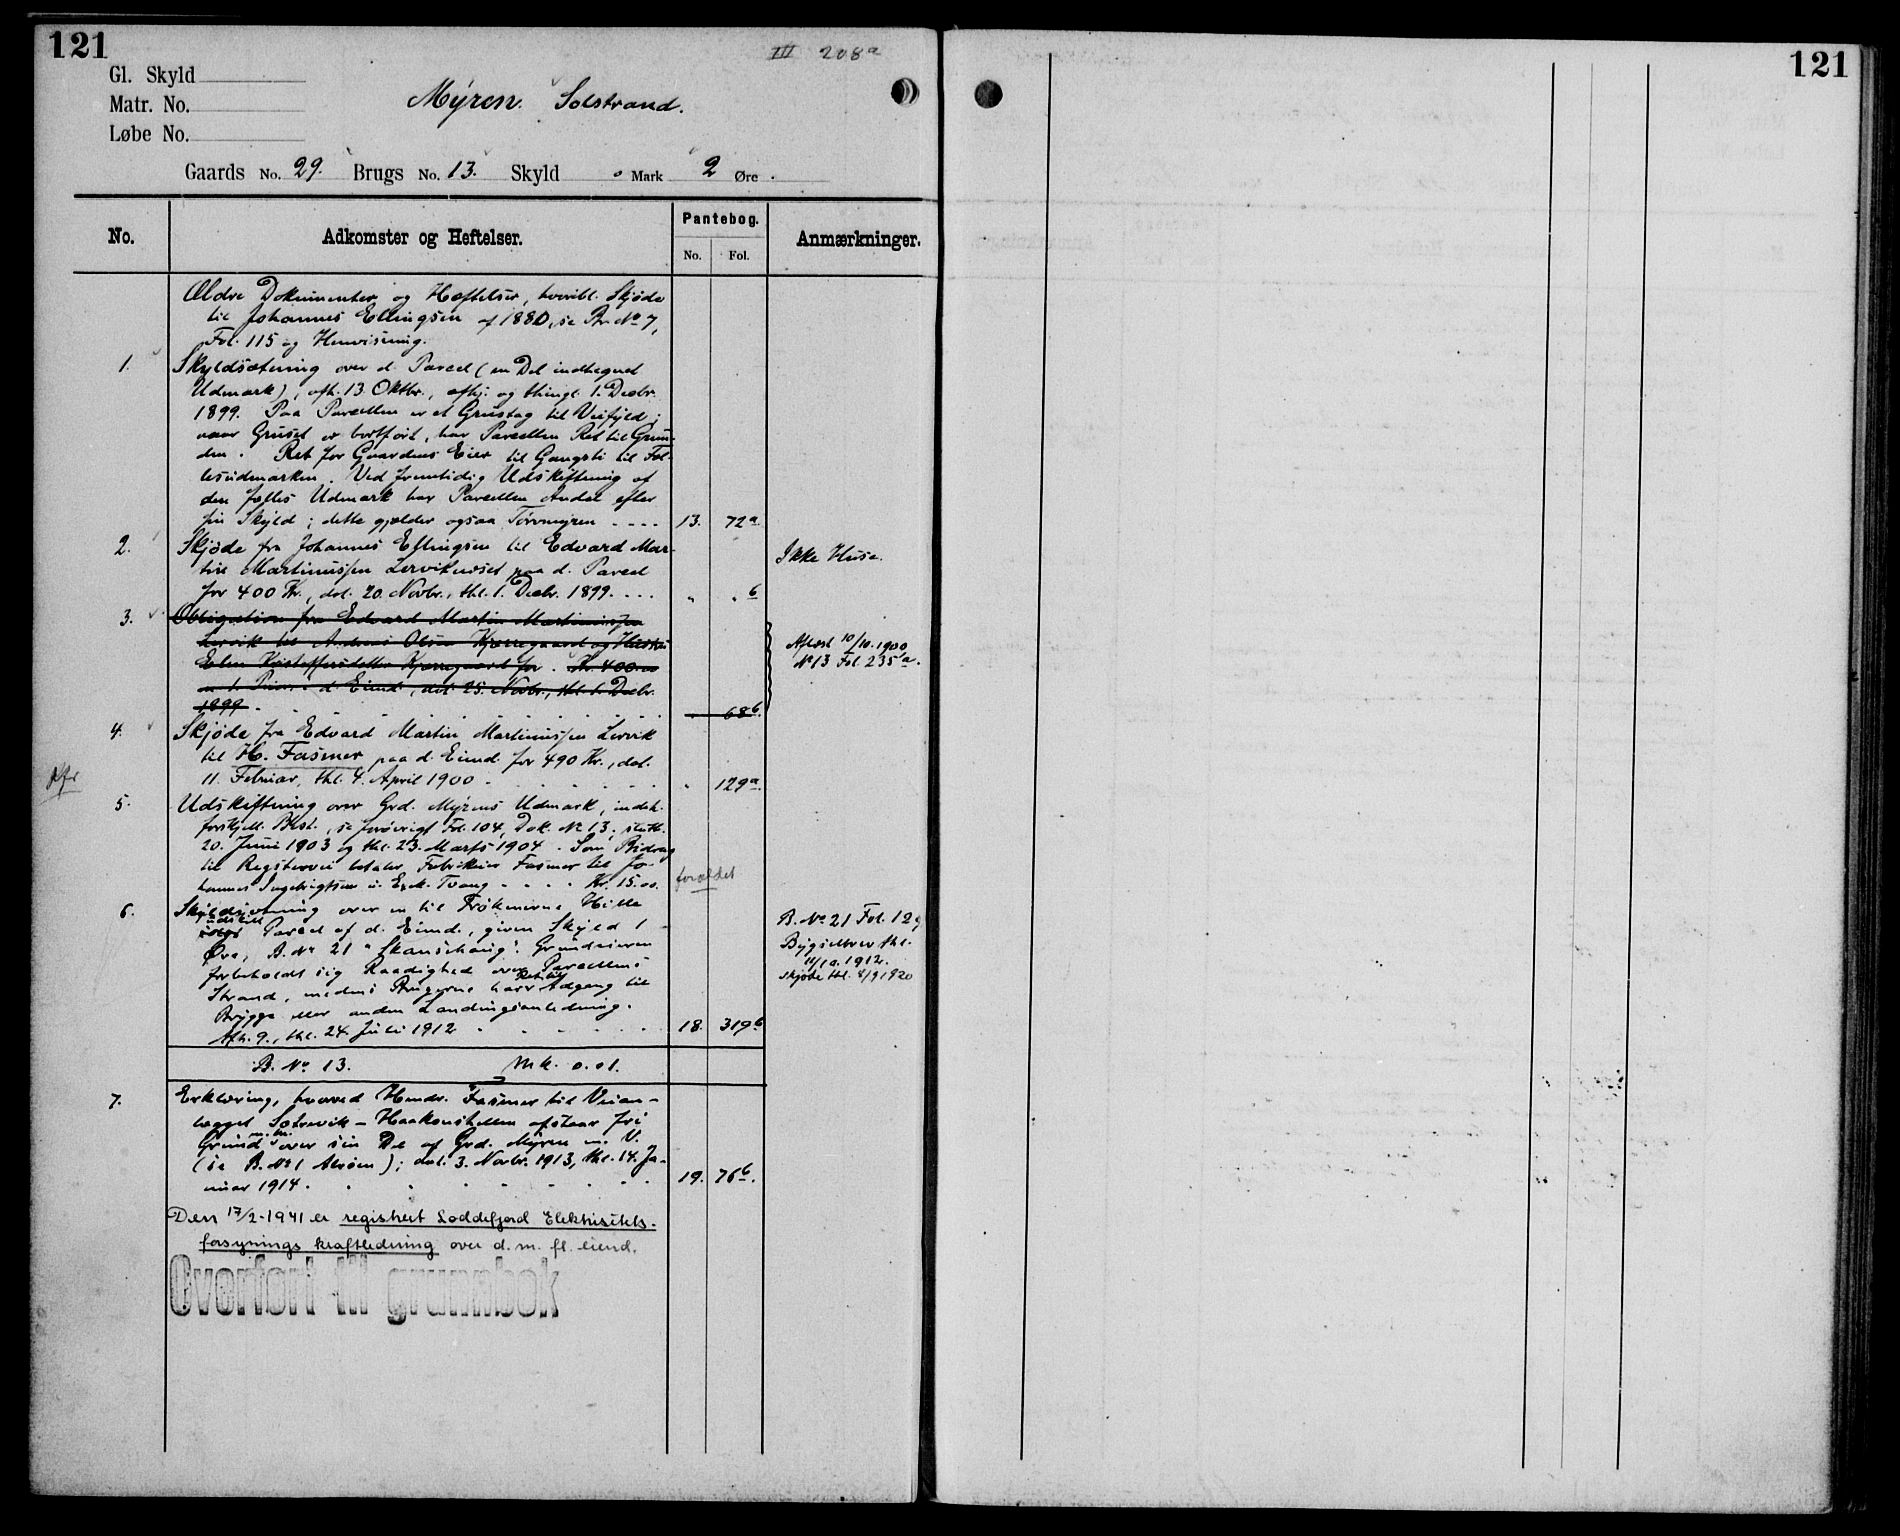 121
III 208a
Gl. Skyld
Matr. No.
Løbe No.
Mýren. Solstrand.
Gaards No. 29. Brugs No. 13. Skyld 0 Mark 2 Øre.
No.
Adkomster og Heftelser.
Pantebog.
No. Fol.
Anmærkninger.
Ældre Dokumenter og Hæftelser, hvoribl. Skjøde
til Johannes Ellingsen af 1880, se Br. No 7,
Fol. 115 og Henvisning.
1. Skyldsætning over d. Parcel (en Del indhegnet
Udmark), afh. 13 Oktbr., afhj. og thingl. 1. Decbr.
1899. Paa Parcellen er et Grustag til Veifyld;
naar Gruset er bortført, har Parcellen Ret til Grun-
den. Ret for Gaardens Eier til Gangsti til Fæl-
lesudmarken. Ved fremtidig Udskiftning af
den fælles Udmark har Parcellen Andel efter
sin Skyld; dette gjælder ogsaa Torvmyren - - - - 13. 72a
2. Skjøde fra Johannes Ellingsen til Edvard Mar-
tin Martinussen Lerviknæset paa d. Parcel
for 400 Kr., dat. 20. Novbr., thl. 1. Decbr. 1899. . . . " " b
Ikke Huse.
3. Obligation fra Edvard Martin Martinussen
Lervik til Anders Olsen Kjærregaard og Hustru
Elen Kristoffersdatter Kjærregaard for. Kr. 400.00
m 1. Prior. i d. Eiend., dat. 25. Novbr., thl. 1. Decbr.
1899. 68b.
Aflæst 10/10.1900,
No 13 Fol. 235a.
4. Skjøde fra Edvard Martin Martinussen Lervik
til H. Fasmer paa d. Eiend. for 490 Kr., dat.
11. Februar, thl. 4. April 1900 . . . " 129a.
5. Udskiftning over Grd. Mýrens Udmark, indeh.
forskjell. Best., se forøvrigt Fol. 104, Dok. No 13, slutt.
20. Juni 1903 og thl. 23. Marts 1904. Som Bidrag
til betaler Fabrikeier Fasmer til Jo-
hannes Ingebrigtsen u. Exek. Tvang - - - - Kr. 15.00.
forældet
6. Skyldsætning over en til Frøknerne Hille
udskilt
Parcel af d. Eiend., given Skyld 1
Øre, B. No 21 "Skansehaug". Grundeieren
forbeholdt sig Raadighed over Parcellens
Strand, medens Brugerne have Ret til Adgang til
Brygge eller anden Landingsindledning.
Afh. 9., thl. 24. Juli 1912 . . . 18. 319b
B. No 21 Fol. 129
Bygselbrev thl.
11/10.1912.
skjøte thl. 8/9 1920
B. No 13. Mk. 0.01.
7. Erklæring, hvorved Hendr. Fasmer til Veian-
lægget Sotrevik - Haakonshellen afstaar fri
Grund m. m. over sin Del af Grd. Mýren m. V.
(se B. No 1 Alsøen); dat. 3. Novbr. 1913, thl. 14. Ja-
nuar 1914. . . . 19. 76b.
Den 17/2-1941 er registrert Loddefjord Elektrisitets-
forsynings kraftledning over d. m. fl. eiend.
Overført til grunnbok
121